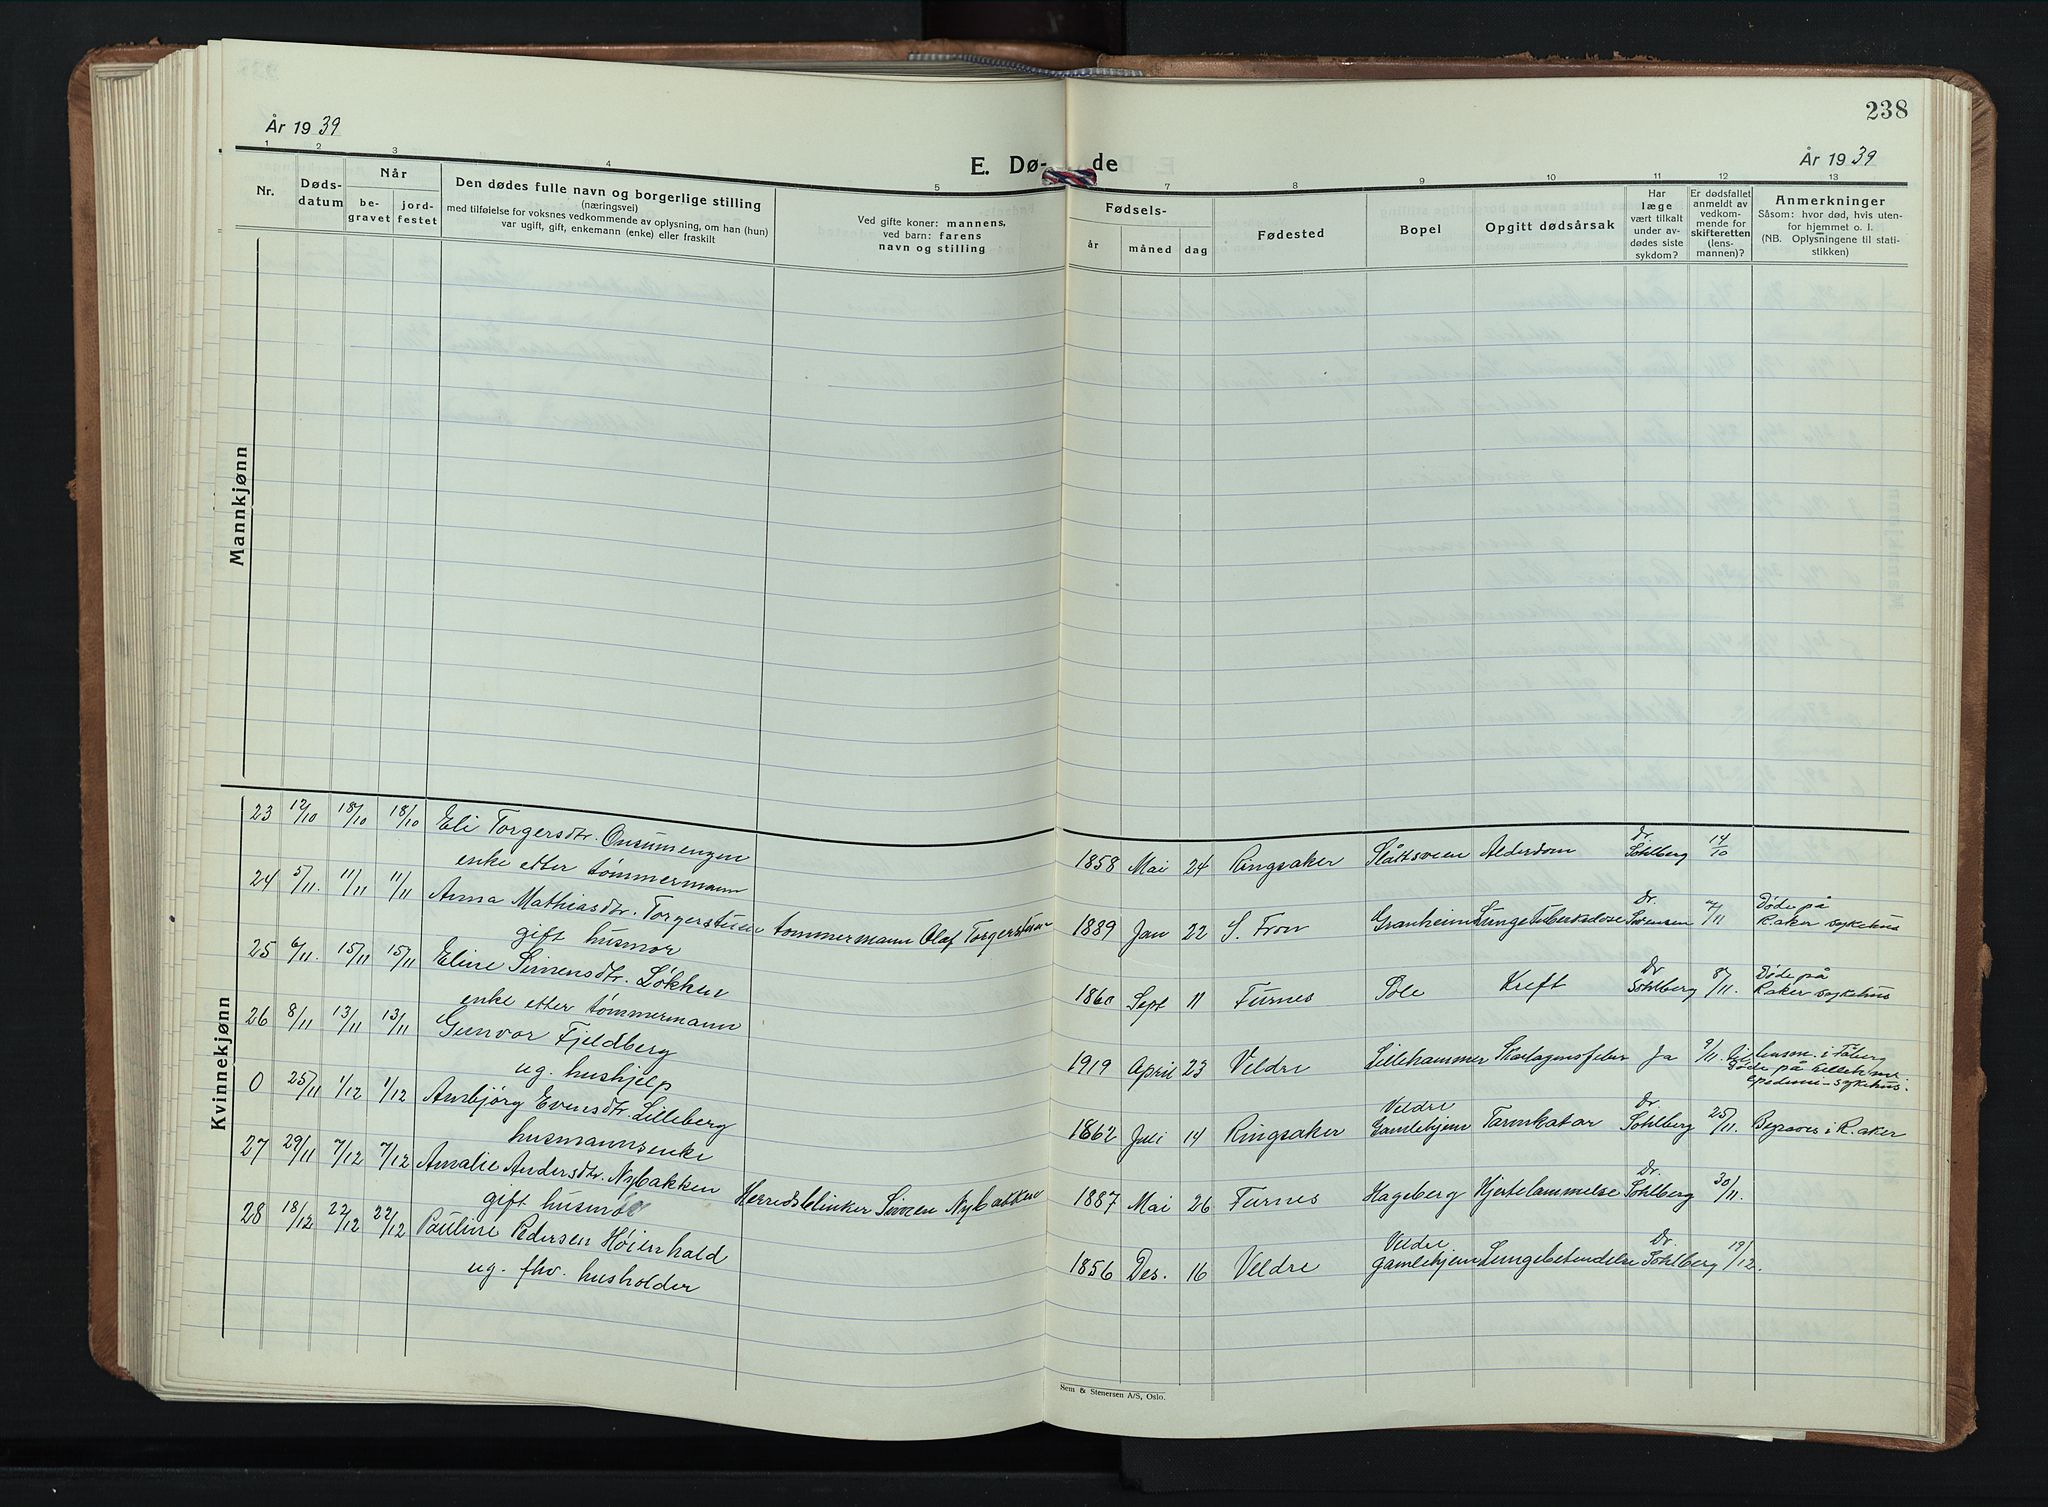 238
År 1939
E. Dø-
de
År 1939
1
2
3
4
5
7
8
9
10
11
12
13
Nr.
Døds-
datum
Når
be-
gravet
jord-
festet
Den dødes fulle navn og borgerlige stilling
(næringsvei)
med tilføielse for voksnes vedkommende av oplysning, om han (hun)
var ugift, gift, enkemann (enke) eller fraskilt
Ved gifte koner: mannens,
ved barn: farens
navn og stilling
Fødsels-
år
måned
dag
Fødested
Bopel
Opgitt dødsårsak
Har
læge
vært tilkalt
under av-
dødes siste
sykdom?
Er dødsfallet
anmeldt av
vedkom-
mende for
skifteretten
(lens-
mannen)?
Anmerkninger
Såsom: hvor død, hvis uten-
for hjemmet o. l.
(NB. Oplysningene til stati-
stikken)
Mannkjønn
Kvinnekjønn
23 12/10 18/10 18/10 Eli Torgersdtr. Onsumengen
enke etter tømmermann
1858 Mai 24 Ringsaker Slåttsveen Alderdom Dr. Sohlberg 14/10
24 5/11. 11/11 11/11 Anna Mathiasdtr. Torgerstuen
gift husmor
tømmermann Olaf Torgerstuen
1889 Jan 22 S. Fron Granheim Lungetuberkulose Dr. Sørensen 7/11
Døde på
R.aker sykehus
25 6/11. 15/11 15/11 Eline Simensdtr. Løkken
enke etter tømmermann
1860 Sept 11 Furnes Pole Kreft Dr Sohlberg 8/11.
Døde på
R.aker sykehus
26 8/11 13/11 13/11 Gunvor Fjeldberg
ug. hushjelp
1919 April 23 Veldre Lillehammer Skarlagensfeber Ja 9/11.
lensm. i Fåberg
Døde på Lilleh.mr
epidemi-sykehus.
0 25/11 1/12 1/12 Anbjørg Evensdtr. Lilleberg
husmannsenke
1862 Juli 14 Ringsaker Veldre Gamlehjem Tarmkatar Dr. Sohlberg 25/11. Begraves i R.aker
27 29/11 7/12 7/12 Amalie Andersdtr. Nybakken
gift husmor
Nybakken
1887 Mai 26 Furnes Hageberg Hjertelammelse Dr. Sohlberg 30/11.
28 18/12 22/12 22/12 Pauline Pedersen Høienhald
ug. fhv. husholder
1856 Des. 16 Veldre Veldre gamlehjem Lungebetendelse Dr. Sohlberg 19/12.
Sem & Stenersen A/S, Oslo.